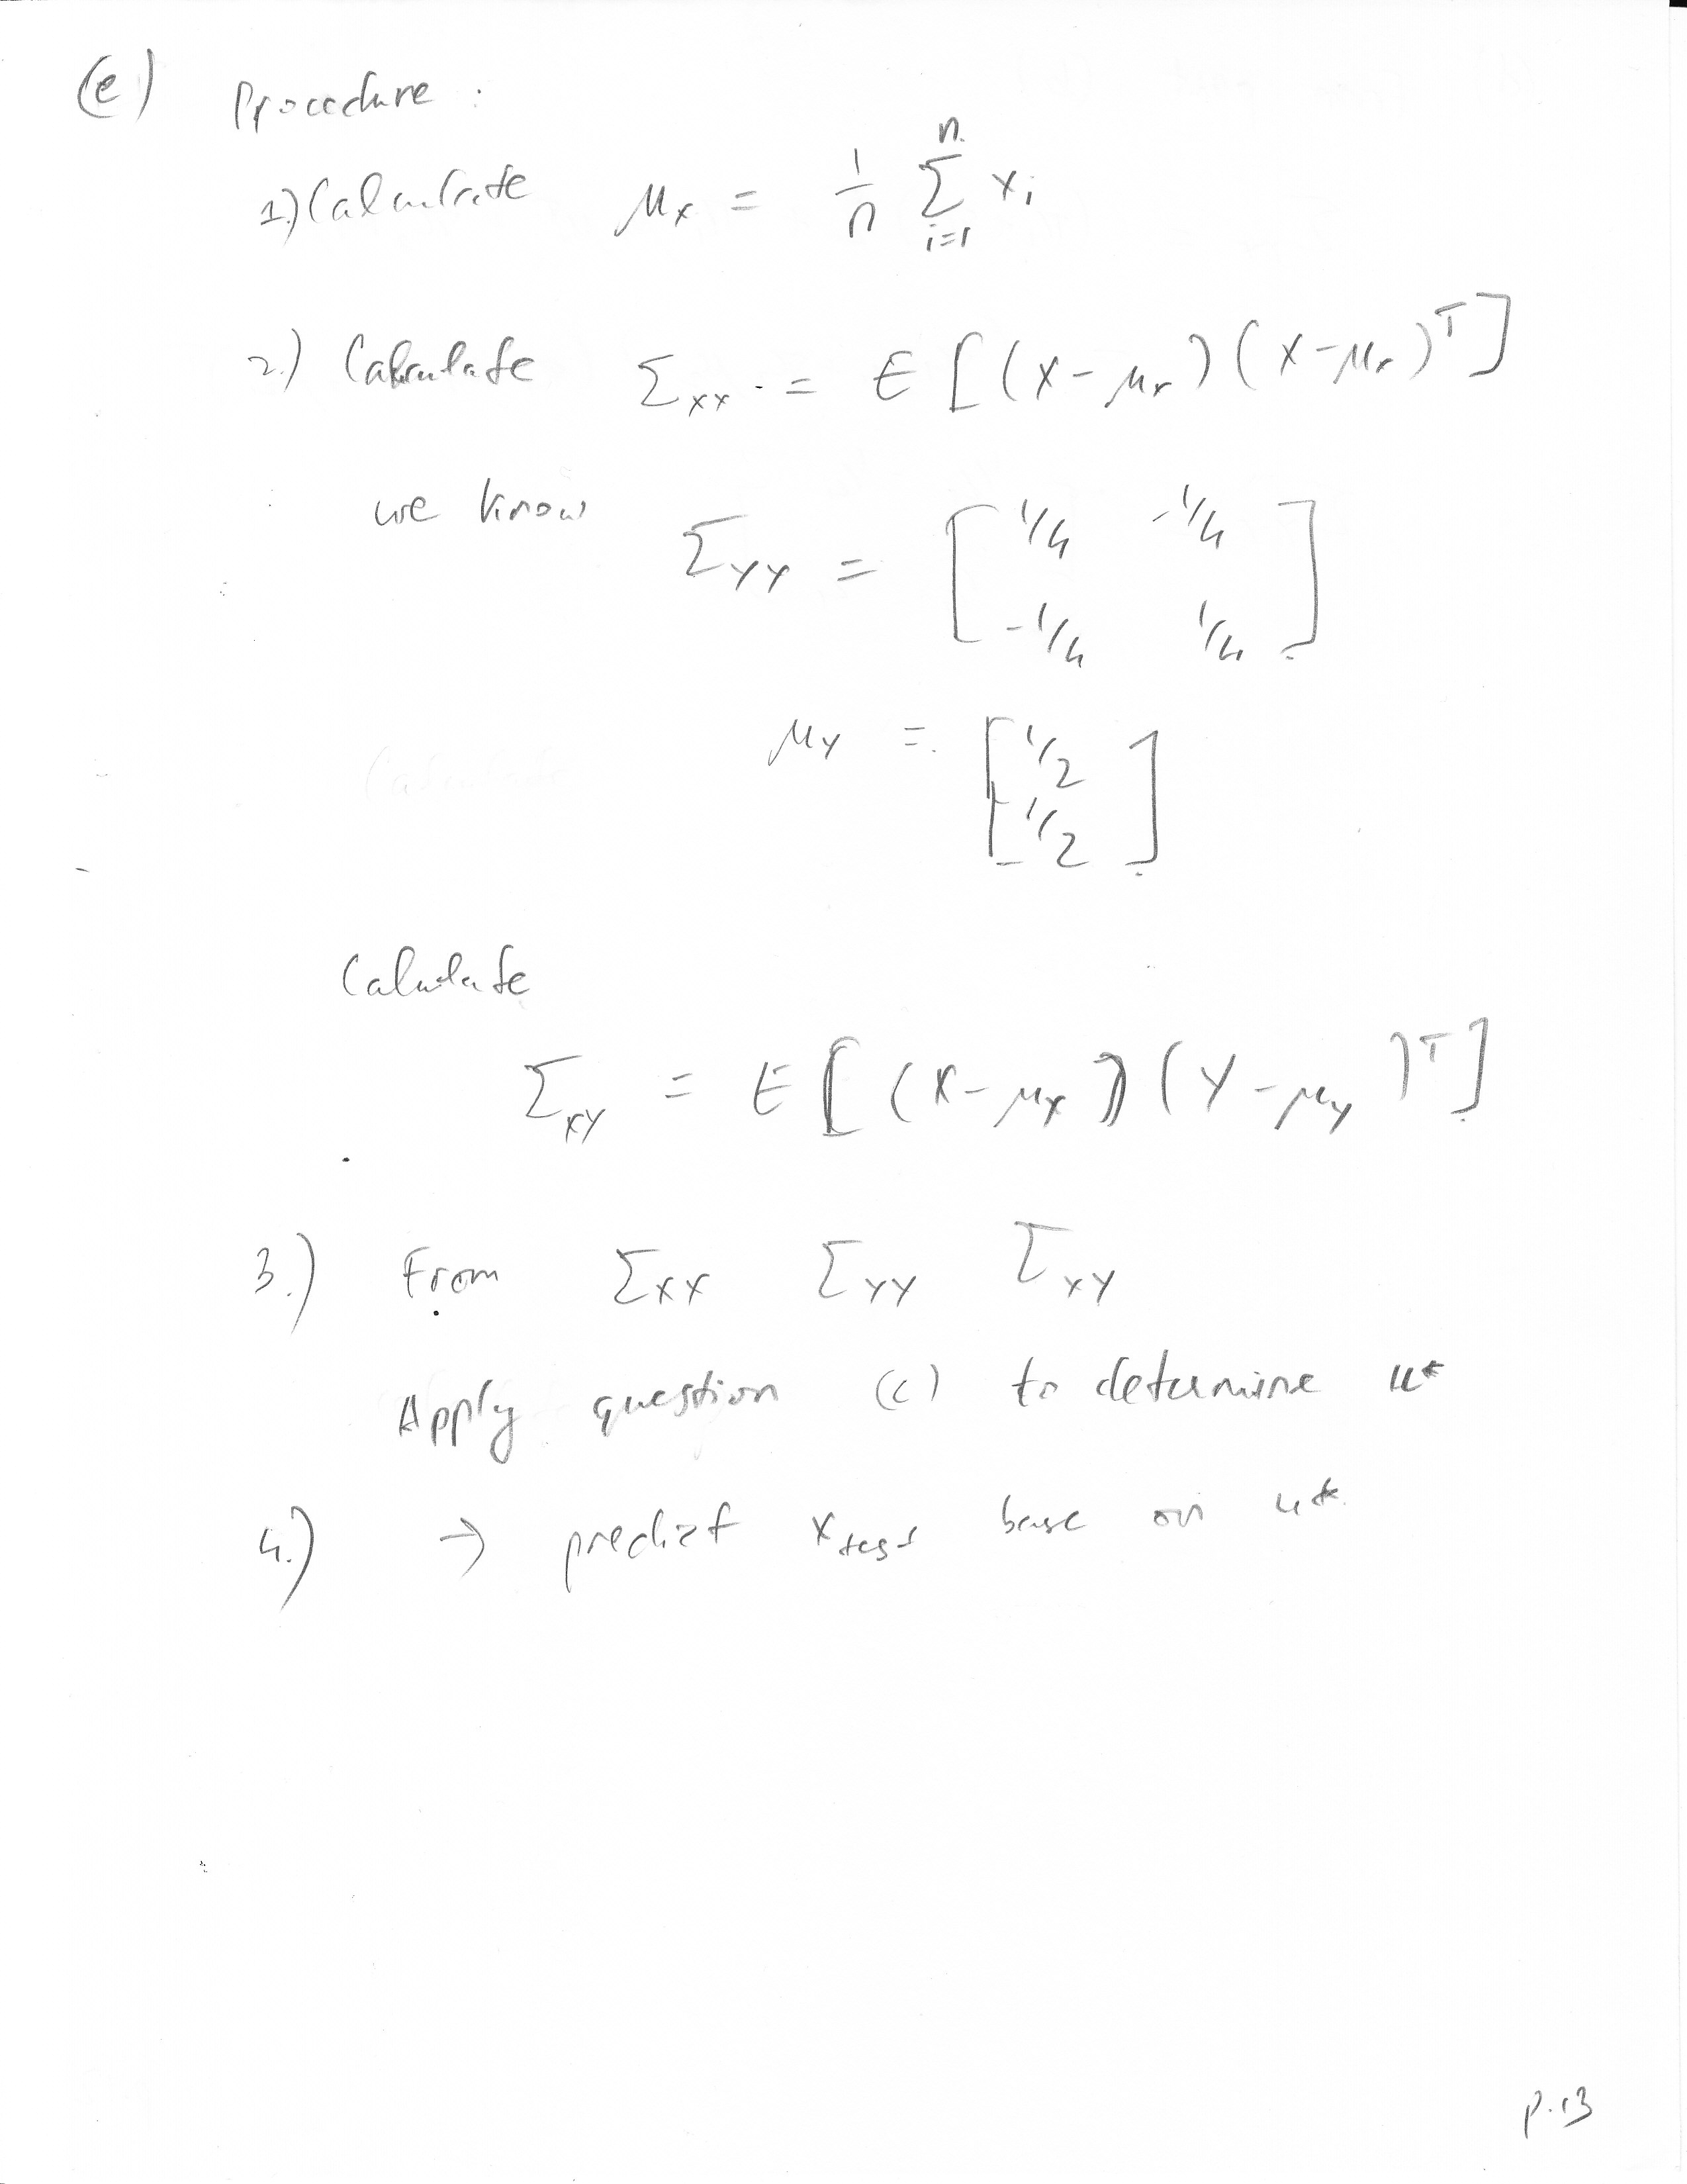 (e) Procedure :
1) Calculate μ_x = 1/n Σ_{i=1}^{n} x_i
2.) Calculate Σ_xx = E[(x-μ_x)(x-μ_x)^T]
we know Σ_YY = [1/4 -1/4
-1/4 1/4]
μ_Y = [1/2
1/2]
Calculate
Σ_XY = E[(X-μ_X)(Y-μ_Y)^T]
3.) From Σ_XX Σ_YY Σ_XY
Apply question (c) to determine u*
4.) → predict x_test base on u*.
p.13